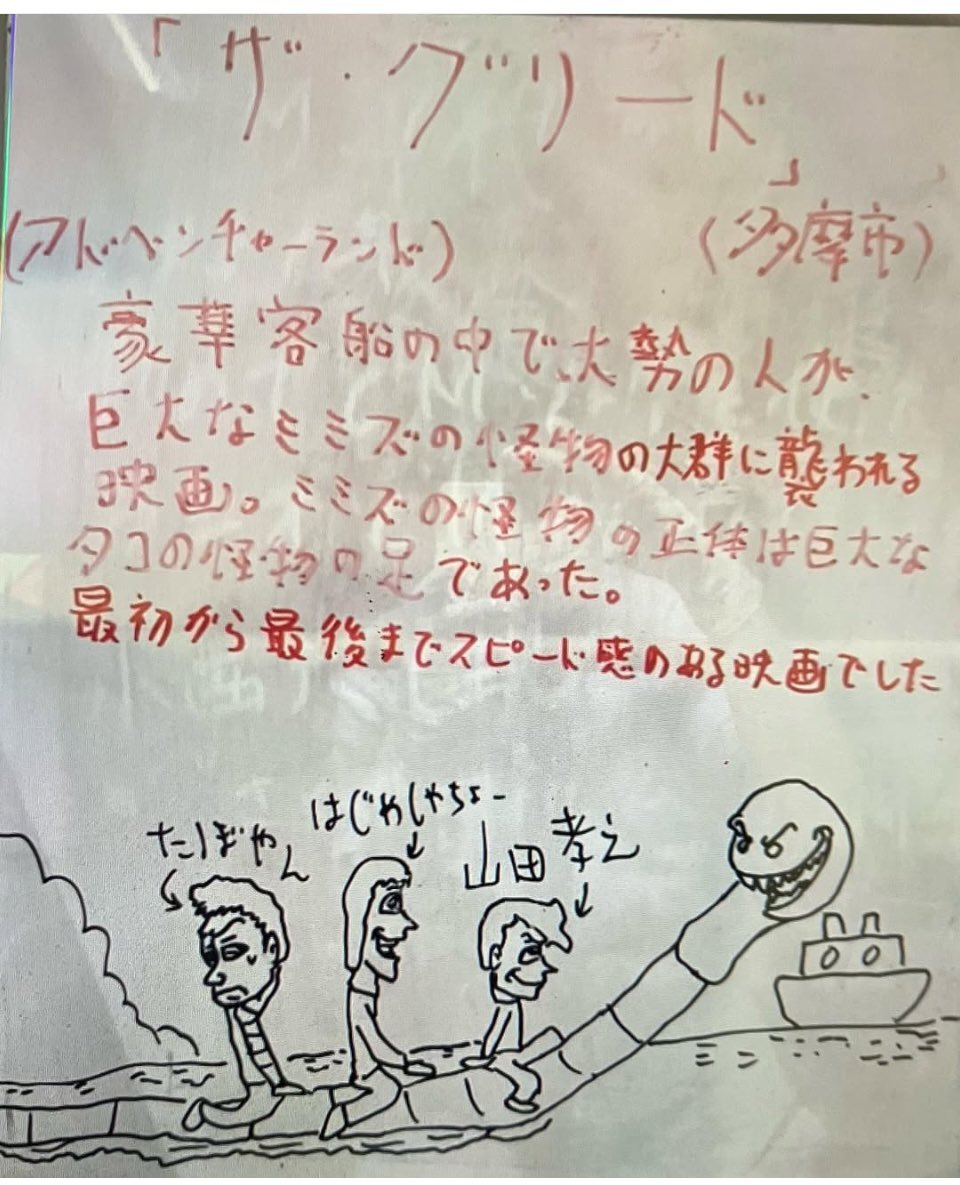 「ザ・グリード」
(アドベンチャーランド) (多摩市)
豪華客船の中で、大勢の人が、
巨大なミミズの怪物の大群に襲われる
映画。ミミズの怪物の正体は巨大な
タコの怪物の足であった。
最初から最後までスピード感のある映画でした
たぼやん
はじめしゃちょー
山田孝之